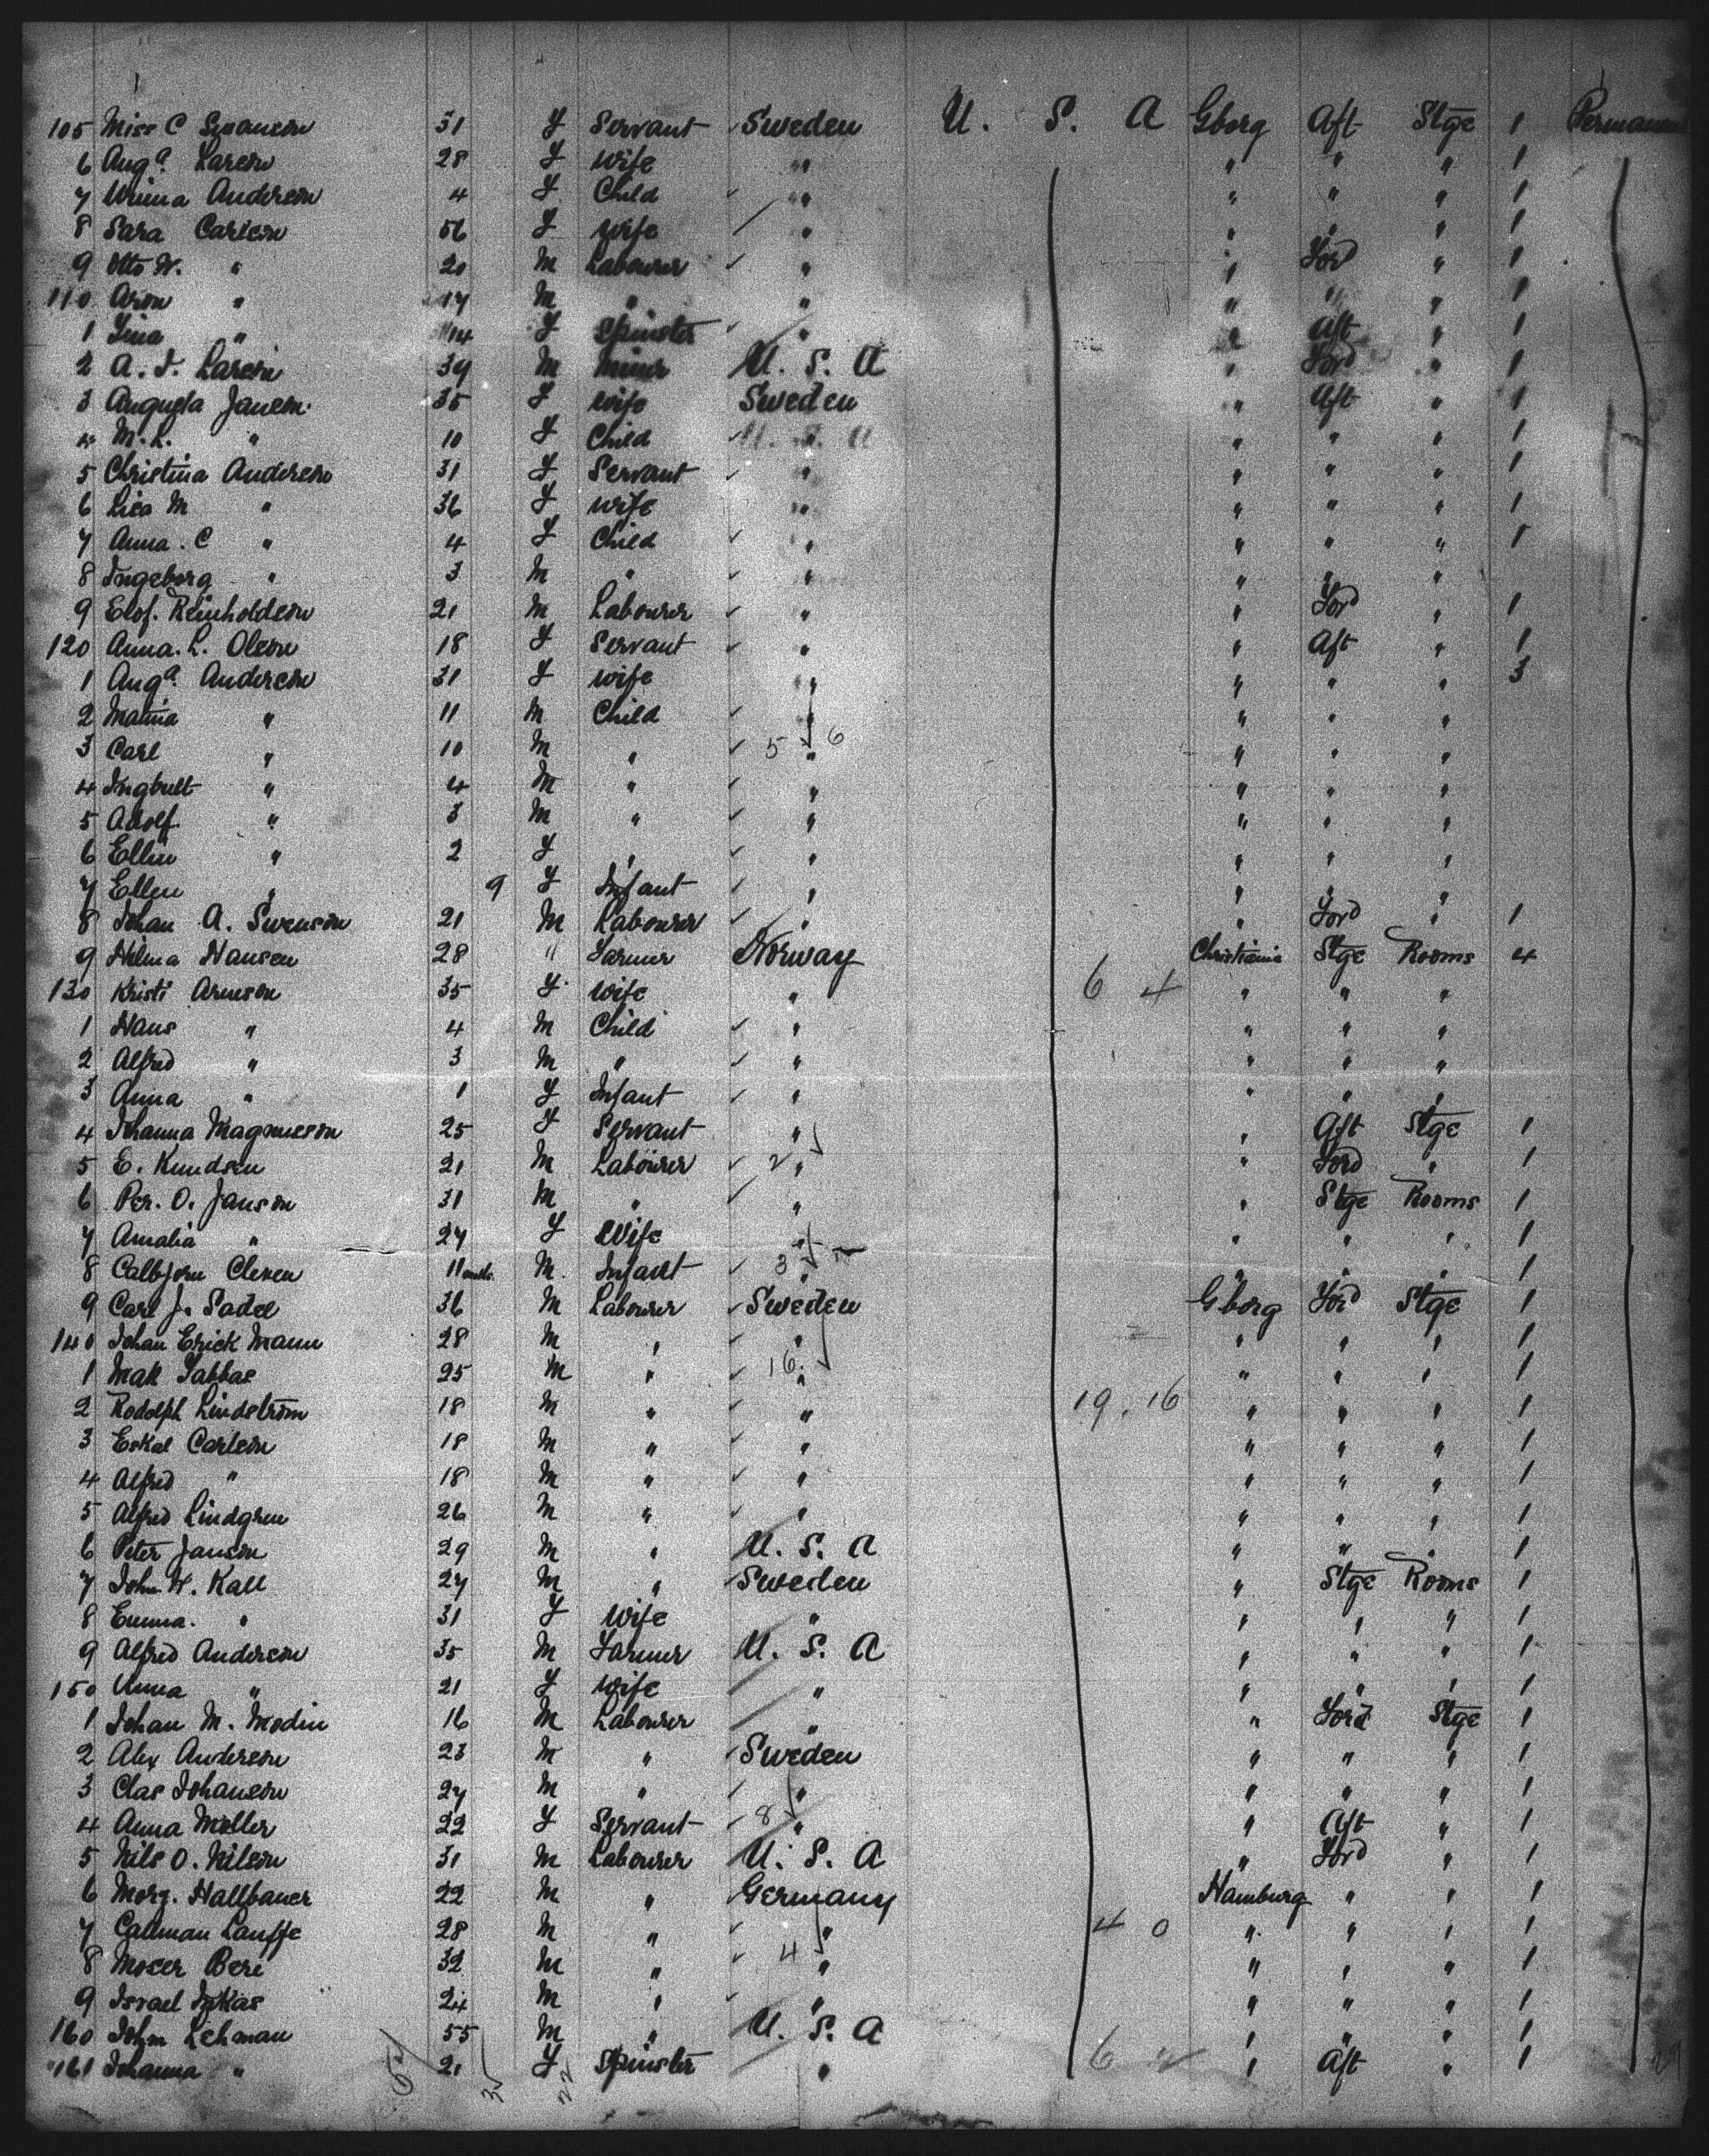 105 Miss C Swanson 31 F Servant Sweden U. S. A Gborg Aft Stge 1 Permanent
6 Auga. Larson 28 F wife " " " " 1
7 Anderson 4 F Child " " " " 1
8 Sara Carlson 56 F wife " " " " 1
9 Otto W. " 20 M Labourer " " Ford " 1
110 Aron " 17 M " " " " " 1
1 Lina " 14 F Spinster " " Aft " 1
2 A. F. Larson 39 M miner U. S. A " Ford " 1
3 Augusta Janson 35 F wife Sweden " Aft " 1
4 M. L. " 10 F Child U. S. A " " " 1
5 Christina Anderson 31 F Servant " " " " 1
6 Lisa M " 36 F wife " " " " 1
7 Anna. C " 4 F Child " " " " 1
8 Ingeborg " 3 M " " " " "
9 Elof. Reinholdson 21 M Labourer " " Ford " 1
120 Anna. L. Olson 18 F Servant " " Aft " 1
1 Auga. Anderson 31 F wife " " " " 3
2 " 11 M Child " " " "
3 Carl " 10 M " 5 " 6 " " "
4 " 4 M " " " " "
5 Adolf. " 3 M " " " " "
6 Ellin " 2 F " " " " "
7 Ellen " 9 F Infant " " " "
8 Johan A. Swenson 21 M Labourer " " Ford " 1
9 Hilma Hansen 28 " Farmer Norway Christiania Stge Rooms 4
130 Kristi Arneson 35 F. wife " 6 4 " " "
1 Hans " 4 M Child " " " "
2 Alfred " 3 M " " " " "
3 Anna " 1 F Infant " " " "
4 Johanna Magnuson 25 F Servant " " Aft Stge 1
5 E. Knudsen 21 M Labourer 2 " " Ford " 1
6 Per. O. Janson 31 M " " " Stge Rooms 1
7 Amalia " 27 F Wife " " " " 1
8 Calbjorn Cleven 11 mths. M. Infant 3 " " " " 1
9 Carl J. Sadel 36 M Labourer Sweden Gborg Ford Stge 1
140 Johan Erick Mann 28 M " " " " " 1
1 25 M " 16 " " " " 1
2 Rodolph Lindström 18 M " " 19. 16 " " " 1
3 Eskal Carlson 18 M " " " " " 1
4 Alfred " 18 M " " " " " 1
5 Alfred Lindgren 26 M " " " " " 1
6 Peter Janson 29 M " U. S. A " " " 1
7 John W. Kall 27 M " Sweden " Stge Rooms 1
8 Emma. " 31 F Wife " " " " 1
9 Alfred Anderson 35 M Farmer U. S. A " " " 1
150 Anna " 21 F wife " " " " 1
1 Johan M. Modin 16 M Labourer " " Ford Stge 1
2 Alex Anderson 23 M " Sweden " " " 1
3 Clas Johanson 27 M " " " " " 1
4 Anna Moller 22 F Servant 8 " " Aft " 1
5 Nils O. Nilson 31 M Labourer U. S. A " Ford " 1
6 Morg. Hallbauer 22 M " Germany Hamburg " " 1
7 Callman 28 M " " 4 0 " " " 1
8 Moser 32 M " 4 " " " " 1
9 Israel 24 M " " " " " 1
160 John Lehman 55 M " U. S. A " " " 1
161 Johanna " 21 F Spinster " 6 " Aft " 1